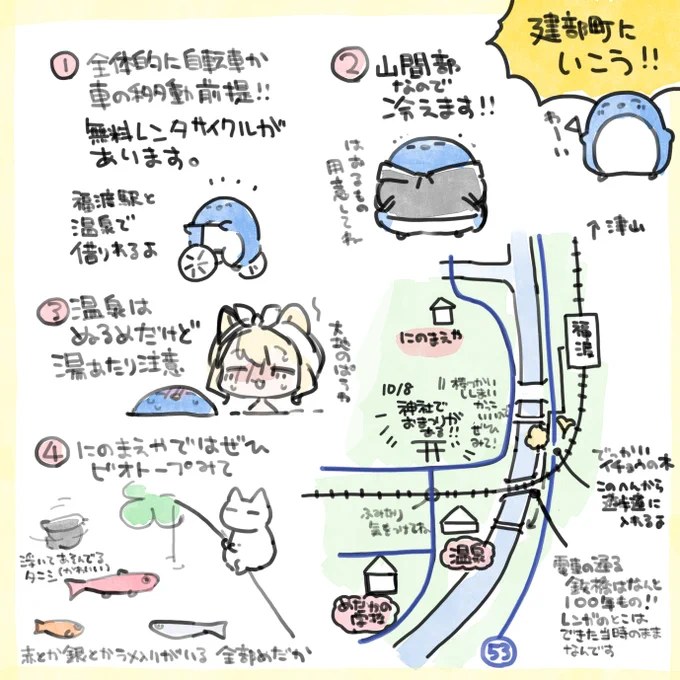 建部町に
いこう!!
わーい
① 全体的に自転車か
車の移動前提!!
無料レンタサイクルが
あります。
福渡駅と
温泉で
借りれるよ
② 山間部
なので
冷えます!!
はおるもの
用意してね
③ 温泉は
ぬるめだけど
湯あたり注意
④ にのまえやではぜひ
ビオトープみて
浮いてあそんでる
タニシ(かわいい)
赤とか銀とかラメ入りがいる 全部めだか
↑津山
福渡
にのまえや
10/8
神社で
おまつりが
ある!!
棒つかい
ししまい
かっこ
いいので
ぜひ
みて!
でっかい
イチョウの木
このへんから
遊歩道に
入れるよ
ふみきり
気をつけてね
温泉
めだかの
学校
電車の通る
鉄橋はなんと
100年もの!!
レンガのとこは
できた当時のまま
なんです
53